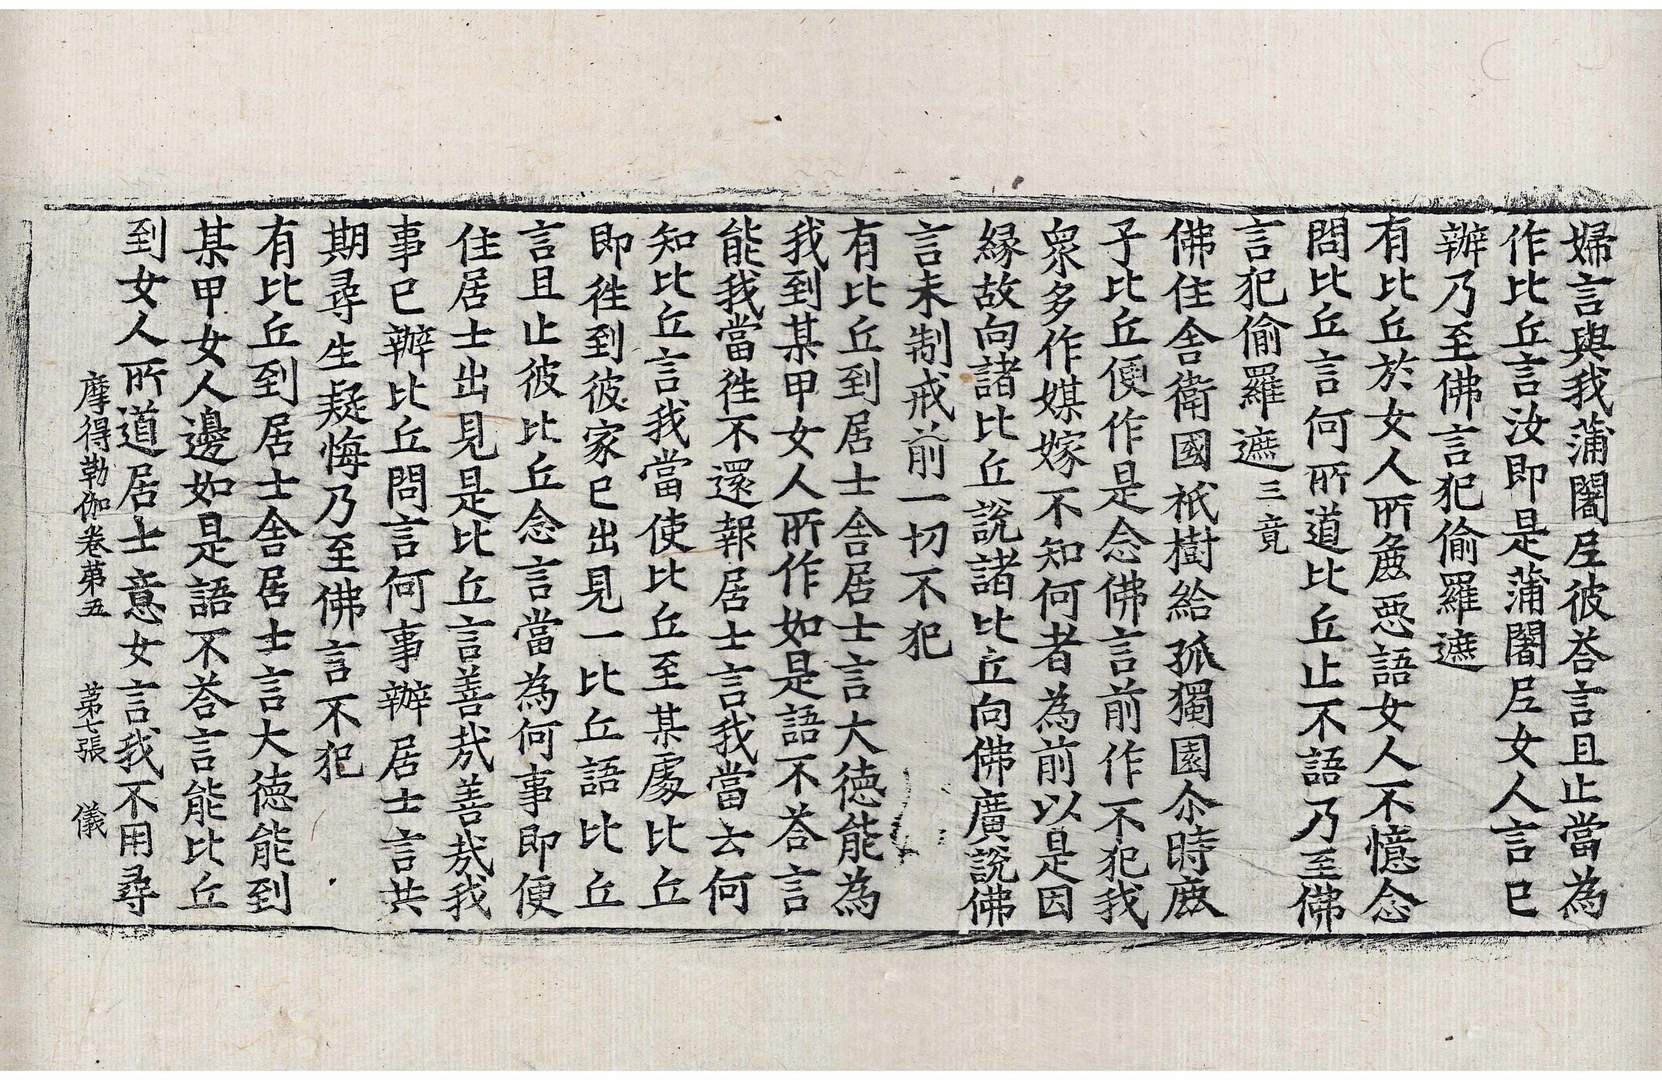 婦言與我蒲闍𡰱彼荅言且止當為
作比丘言汝即是蒲闍𡰱女人言已
辦乃至佛言犯偷羅遮
有比丘於女人所麁惡語女人不憶念
問比丘言何所道比丘止不語乃至佛
言犯偷羅遮三竟
佛住舍衛國祇樹給孤獨園尒時鹿
子比丘便作是念佛言前作不犯我
衆多作媒嫁不知何者為前以是因
緣故向諸比丘說諸比丘向佛廣說佛
言未制戒前一切不犯
有比丘到居士舍居士言大德能為
我到某甲女人所作如是語不荅言
能我當徃不還報居士言我當云何
知比丘言我當使比丘至某處比丘
即徃到彼家已出見一比丘語比丘
言且止彼比丘念言當為何事即便
住居士出見是比丘言善哉善哉我
事已辦比丘問言何事辦居士言共
期尋生疑悔乃至佛言不犯
有比丘到居士舍居士言大德能到
某甲女人邊如是語不荅言能比丘
到女人所道居士意女言我不用尋
摩得勒伽卷苐五 苐七張 儀